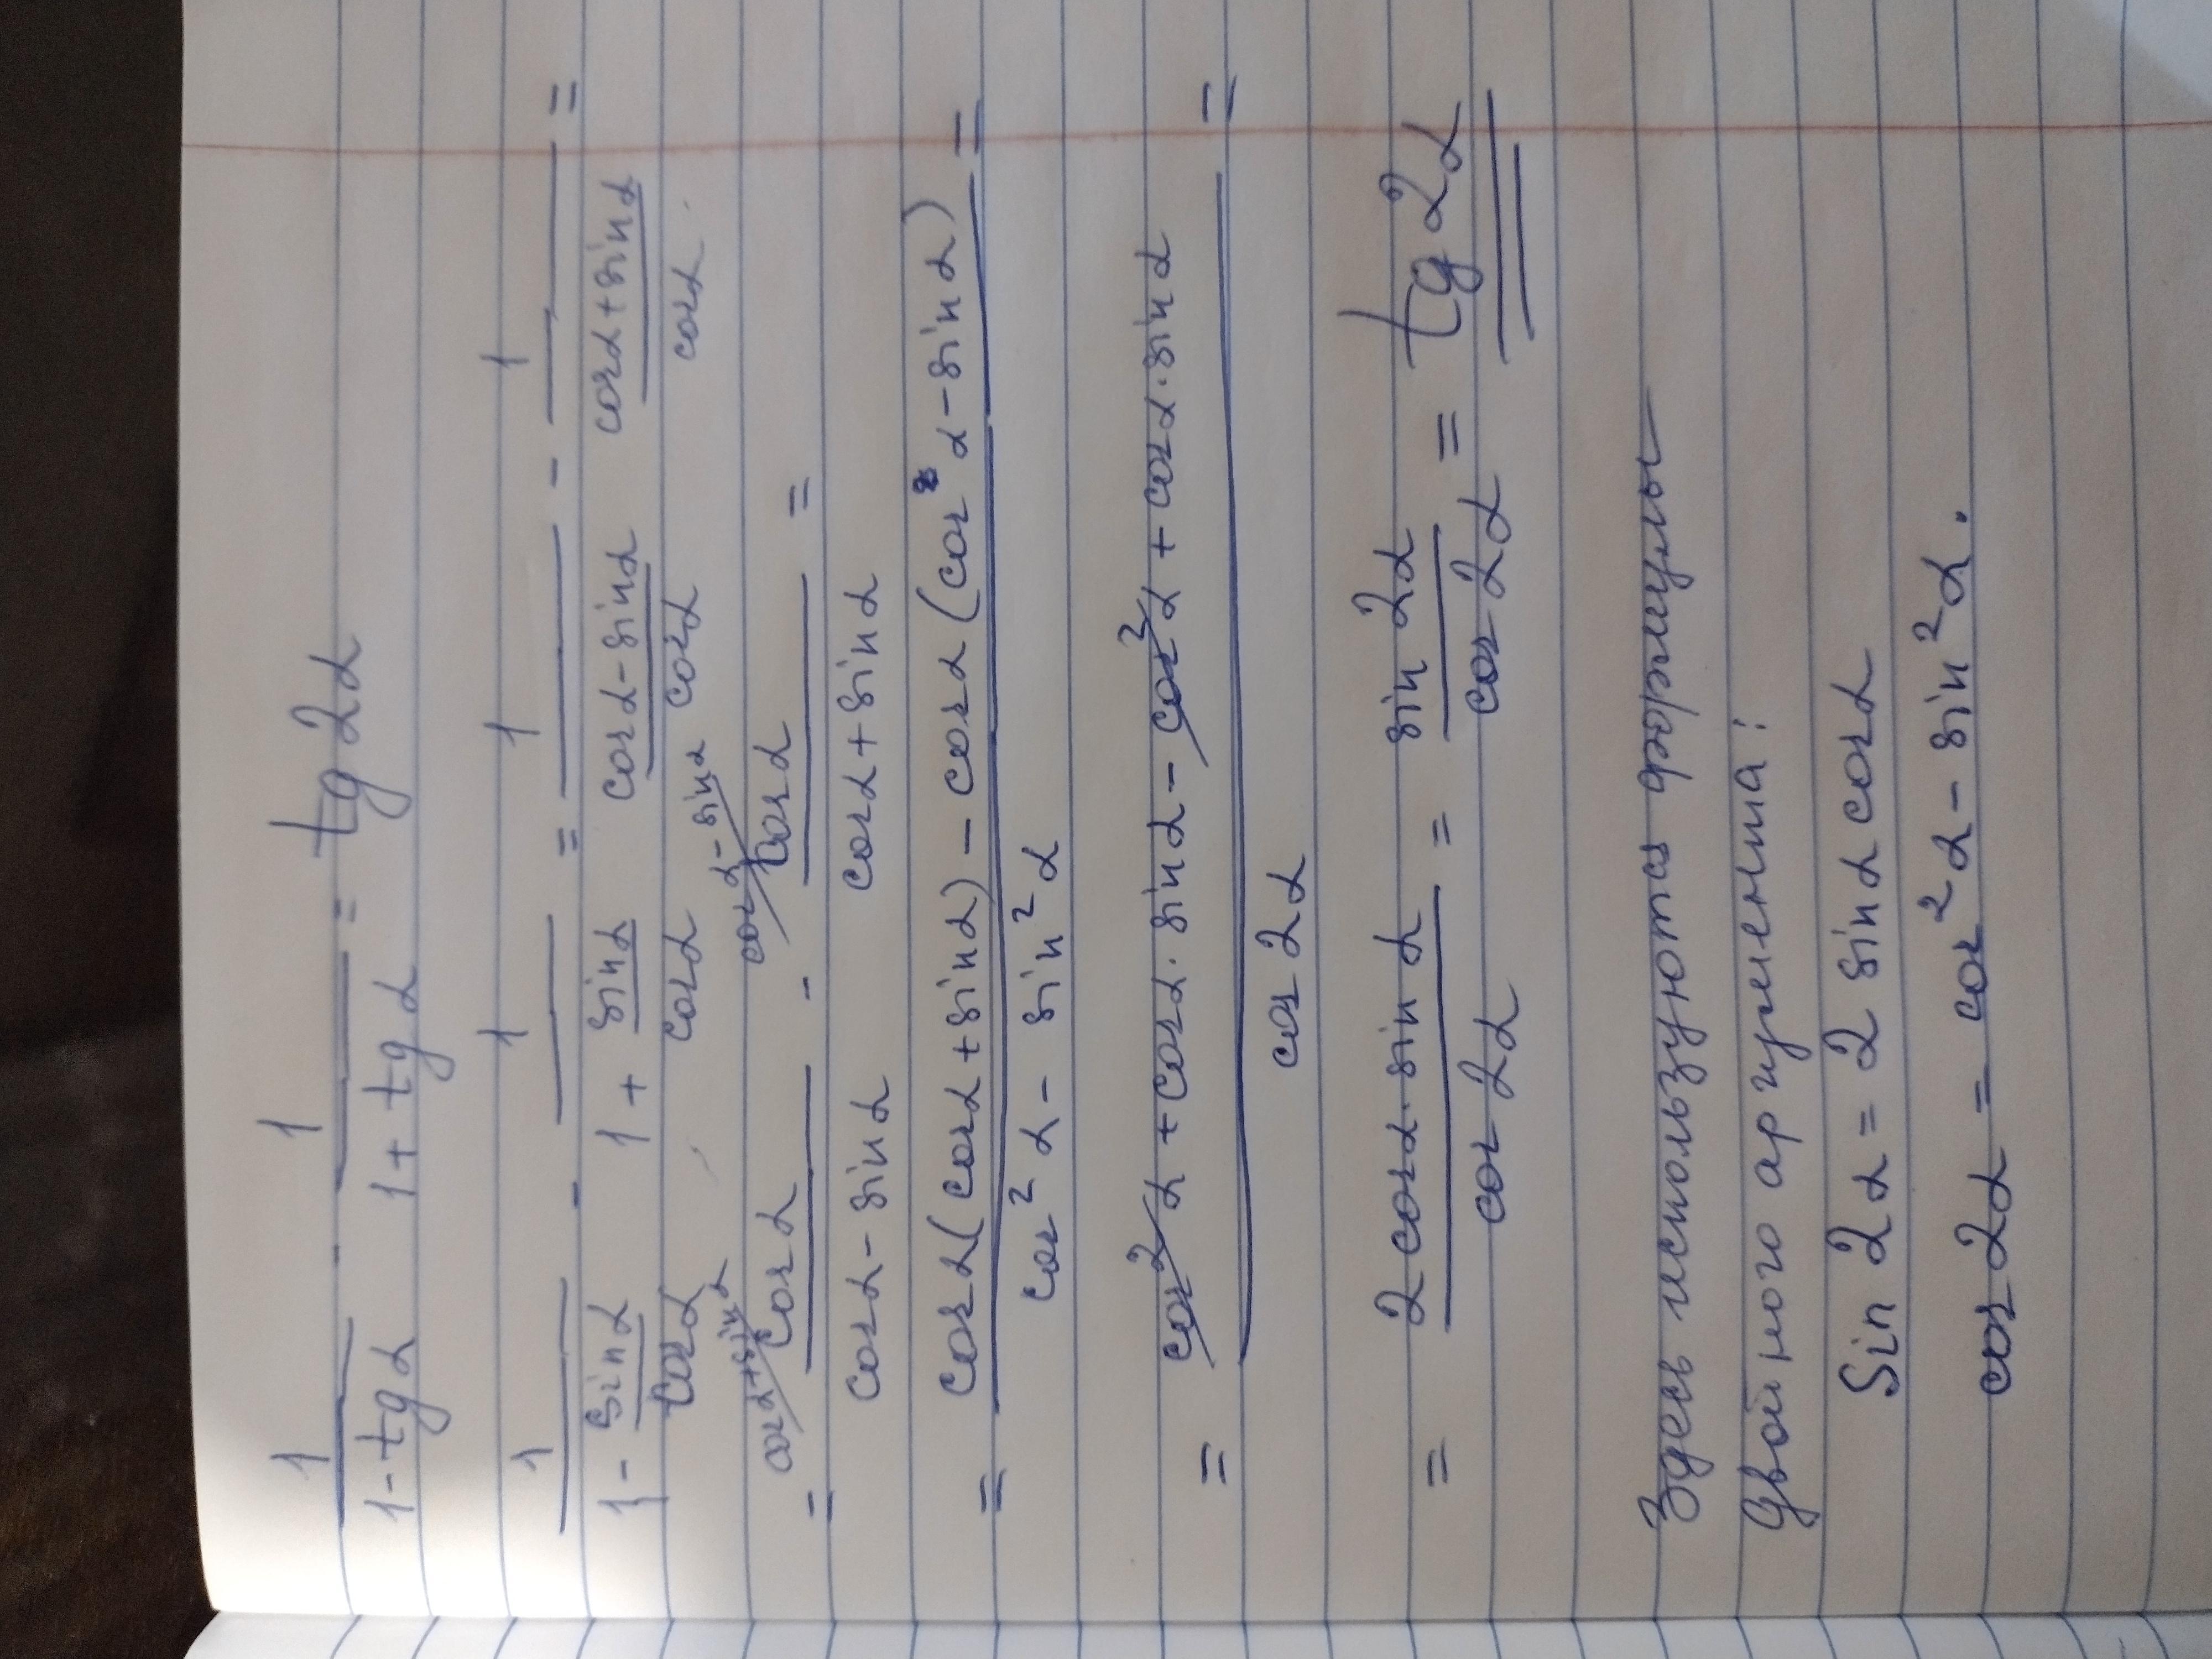 1/(1-tgα) - 1/(1+tgα) = tg2α
1/(1 - sinα/cosα) - 1/(1 + sinα/cosα) = 1/((cosα-sinα)/cosα) - 1/((cosα+sinα)/cosα) =
= cosα/(cosα-sinα) (cosα+sinα - cosα/(cosα+sinα) (cosα-sinα =
= (cosα(cosα+sinα) - cosα(cosα-sinα))/(cos²α - sin²α) =
= (cos²α + cosα·sinα - cos²α + cosα·sinα)/cos2α =
= 2cosα·sinα/cos2α = sin2α/cos2α = tg2α
Здесь используются формулы
двойного аргумента:
Sin2α = 2sinαcosα
cos2α = cos²α - sin²α.